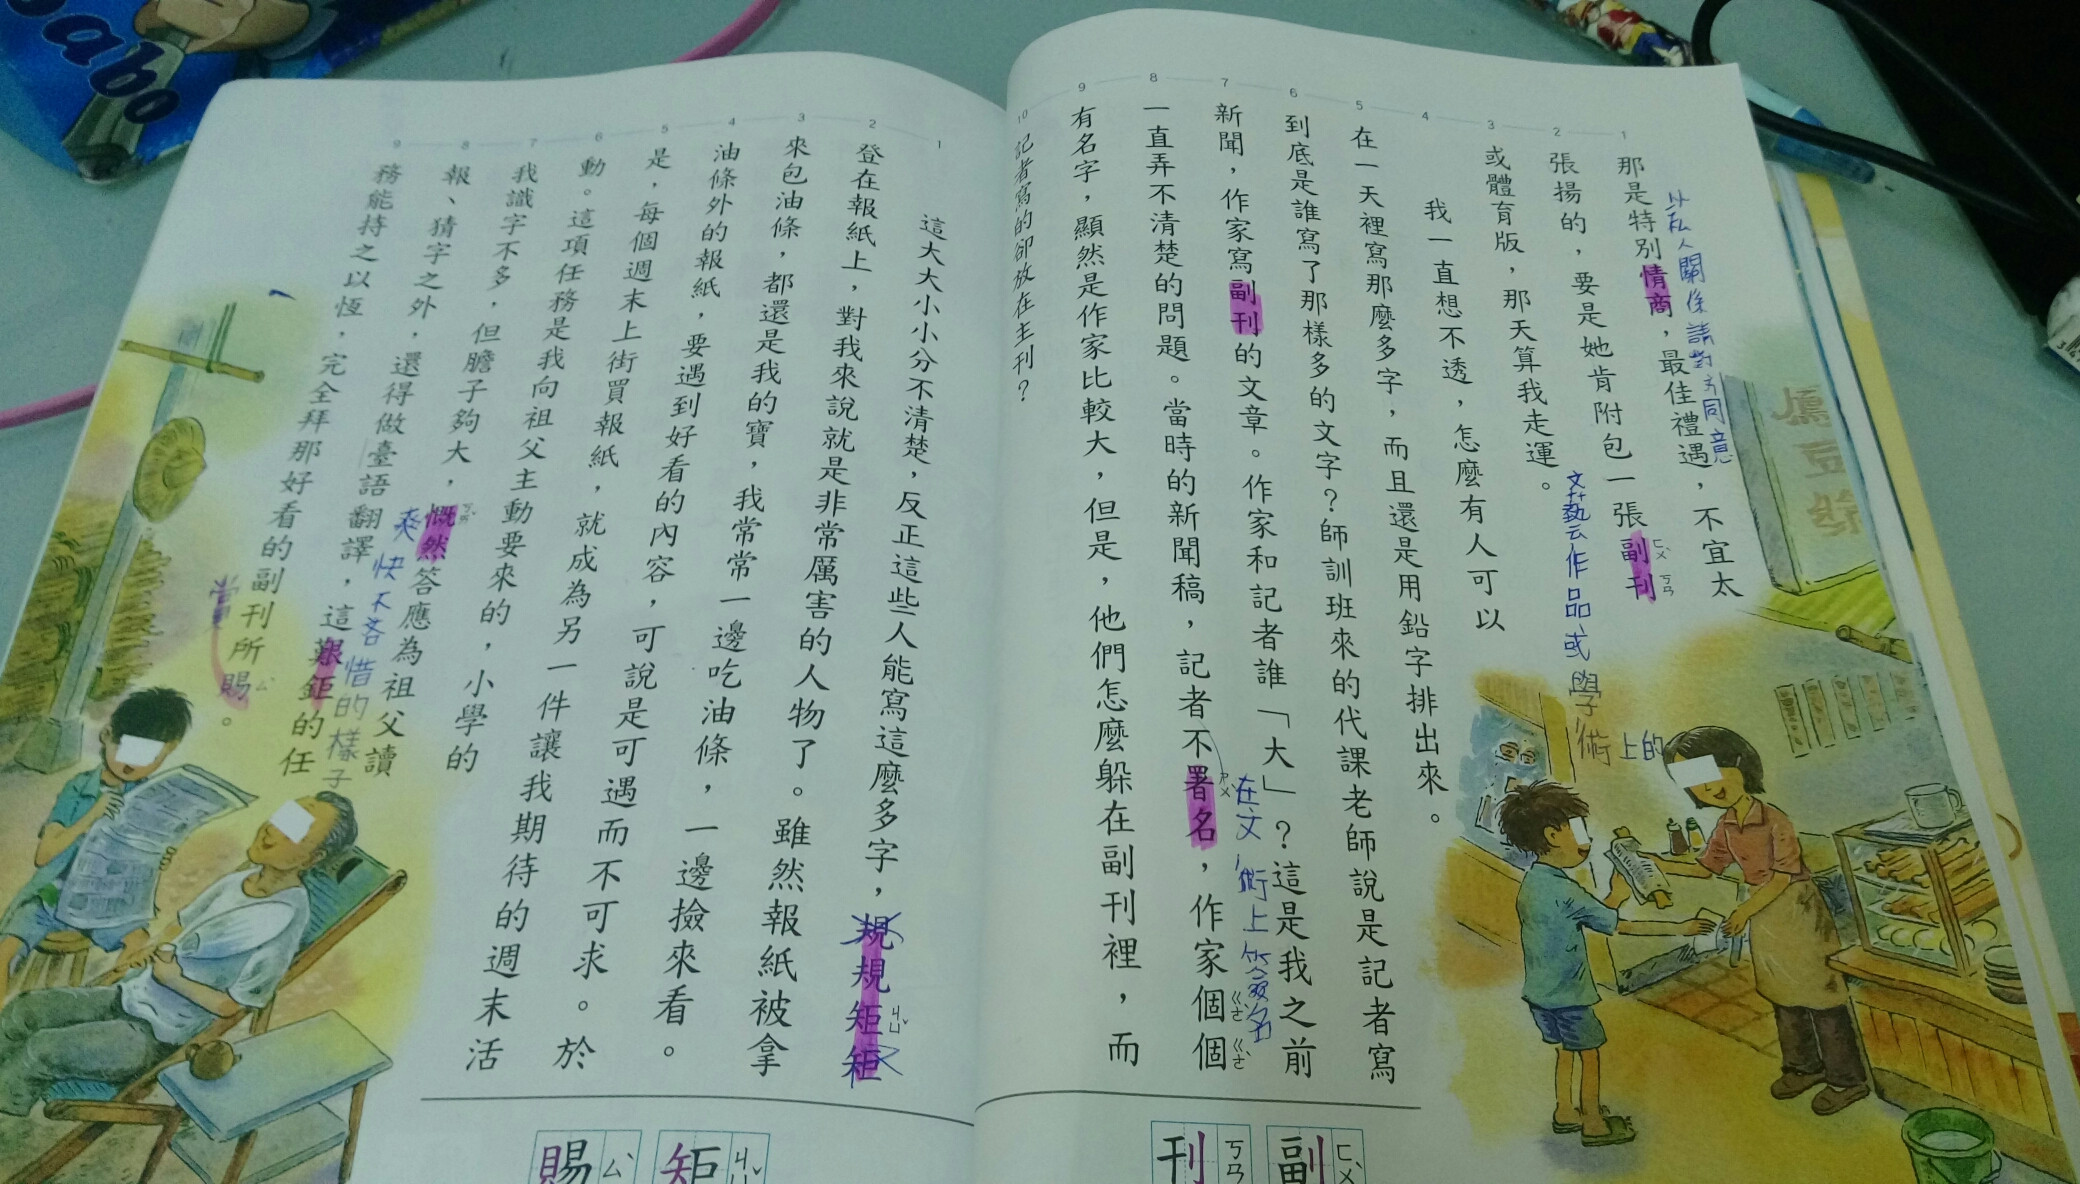 那是特別情商，最佳禮遇，不宜太
以私人關係請對方同意
張揚的，要是她肯附包一張副刊
ㄈㄨˋ ㄎㄢ
或體育版，那天算我走運。
文藝作品或學術上的
我一直想不透，怎麼有人可以
在一天裡寫那麼多字，而且還是用鉛字排出來。
到底是誰寫了那樣多的文字？師訓班來的代課老師說是記者寫
新聞，作家寫副刊的文章。作家和記者誰「大」？這是我之前
一直弄不清楚的問題。當時的新聞稿，記者不署名，作家個個
ㄕㄨˇ
ㄍㄜˋ ㄍㄜˋ
在文術上簽名
有名字，顯然是作家比較大，但是，他們怎麼躲在副刊裡，而
記者寫的卻放在主刊？
副 ㄈㄨˋ
刊 ㄎㄢ
這大大小小分不清楚，反正這些人能寫這麼多字，規規矩矩
ㄐㄩˇ
登在報紙上，對我來說就是非常厲害的人物了。雖然報紙被拿
來包油條，都還是我的寶，我常常一邊吃油條，一邊撿來看。
油條外的報紙，要遇到好看的內容，可說是可遇而不可求。於
是，每個週末上街買報紙，就成為另一件讓我期待的週末活
動。這項任務是我向祖父主動要來的，小學的
我識字不多，但膽子夠大，慨然答應為祖父讀
ㄎㄞˇ
爽快不吝惜的樣子
報、猜字之外，還得做臺語翻譯，這艱鉅的任
務能持之以恆，完全拜那好看的副刊所賜。
ㄙˋ
賞
矩 ㄐㄩˇ
賜 ㄙˋ
1
2
3
4
5
6
7
8
9
10
1
2
3
4
5
6
7
8
9